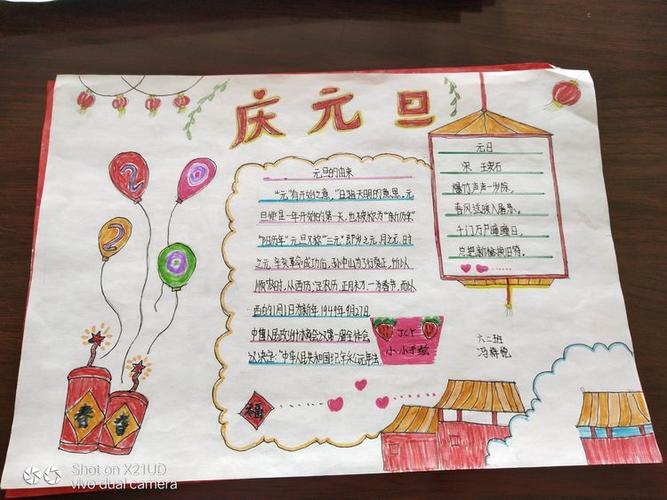 庆元旦
2 0 2 0
元旦的由来
"元"有开始之意,"旦"指天明的意思。元
旦便是一年开始的第一天,也被称为"新历年"
"阳历年"元旦又称"三元"即岁之元、月之元、时
之元,年亥革命成功后,孙中山
顺农时,从西历,定农历正月
西历1月1日为新年1949年9月27日
中国人民政治协商会议第一届全体会
议决定:"中华人民共和国纪年采公元年法
JCY
小小手绘
元日
宋 王安石
爆竹声声一岁除,
春风送暖入屠苏。
千门万户曈曈日,
总把新桃换旧符。
六二班
春 春
福
Shot on X21UD
vivo dual camera